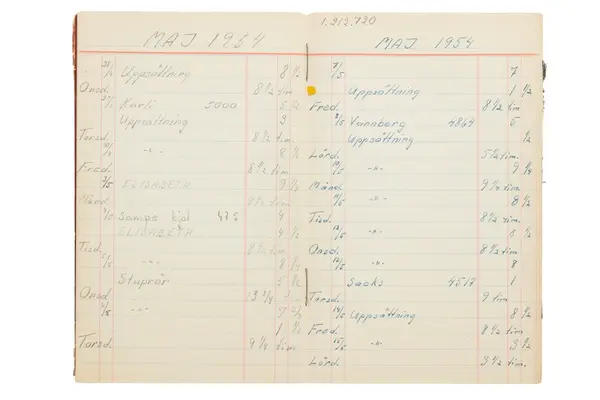 MAJ 1954
28/4 Uppsättning 8 1/2
Onsd. 8 1/2 tim
Karli 5000 5 1/2
Uppsättning 3
Torsd. 8 1/2 tim
-"- 8 1/2
Fred. 8 1/2 tim
ELISABETH 9 1/2
Månd. 9 1/2 tim
Samps kjol 475 4
ELISABETH 4 1/2
Tisd. 8 1/2 tim
-"- 8 1/4
Stuprör 5 1/2
Onsd. 13 3/4
-"-
1 1/2
Torsd. 9 1/4 tim
1.212.720
MAJ 1954
7/5 7
Uppsättning 1 1/2
Fred. 8 1/2 tim
8/5 Vannberg 4864 5
Uppsättning 1/2
Lörd. 5 1/2 tim.
10/5 -"- 9 1/4
Månd. 9 1/4 tim
-"- 8 1/2
Tisd. 8 1/2 tim.
12/5 -"- 8 1/2
Onsd. 8 1/2 tim
13/5 -"- 8
Sacks 4517 1
Torsd. 9 tim
14/5 Uppsättning 8 1/2
Fred. 8 1/2 tim
15/5 -"- 3 1/2
Lörd. 3 1/2 tim.